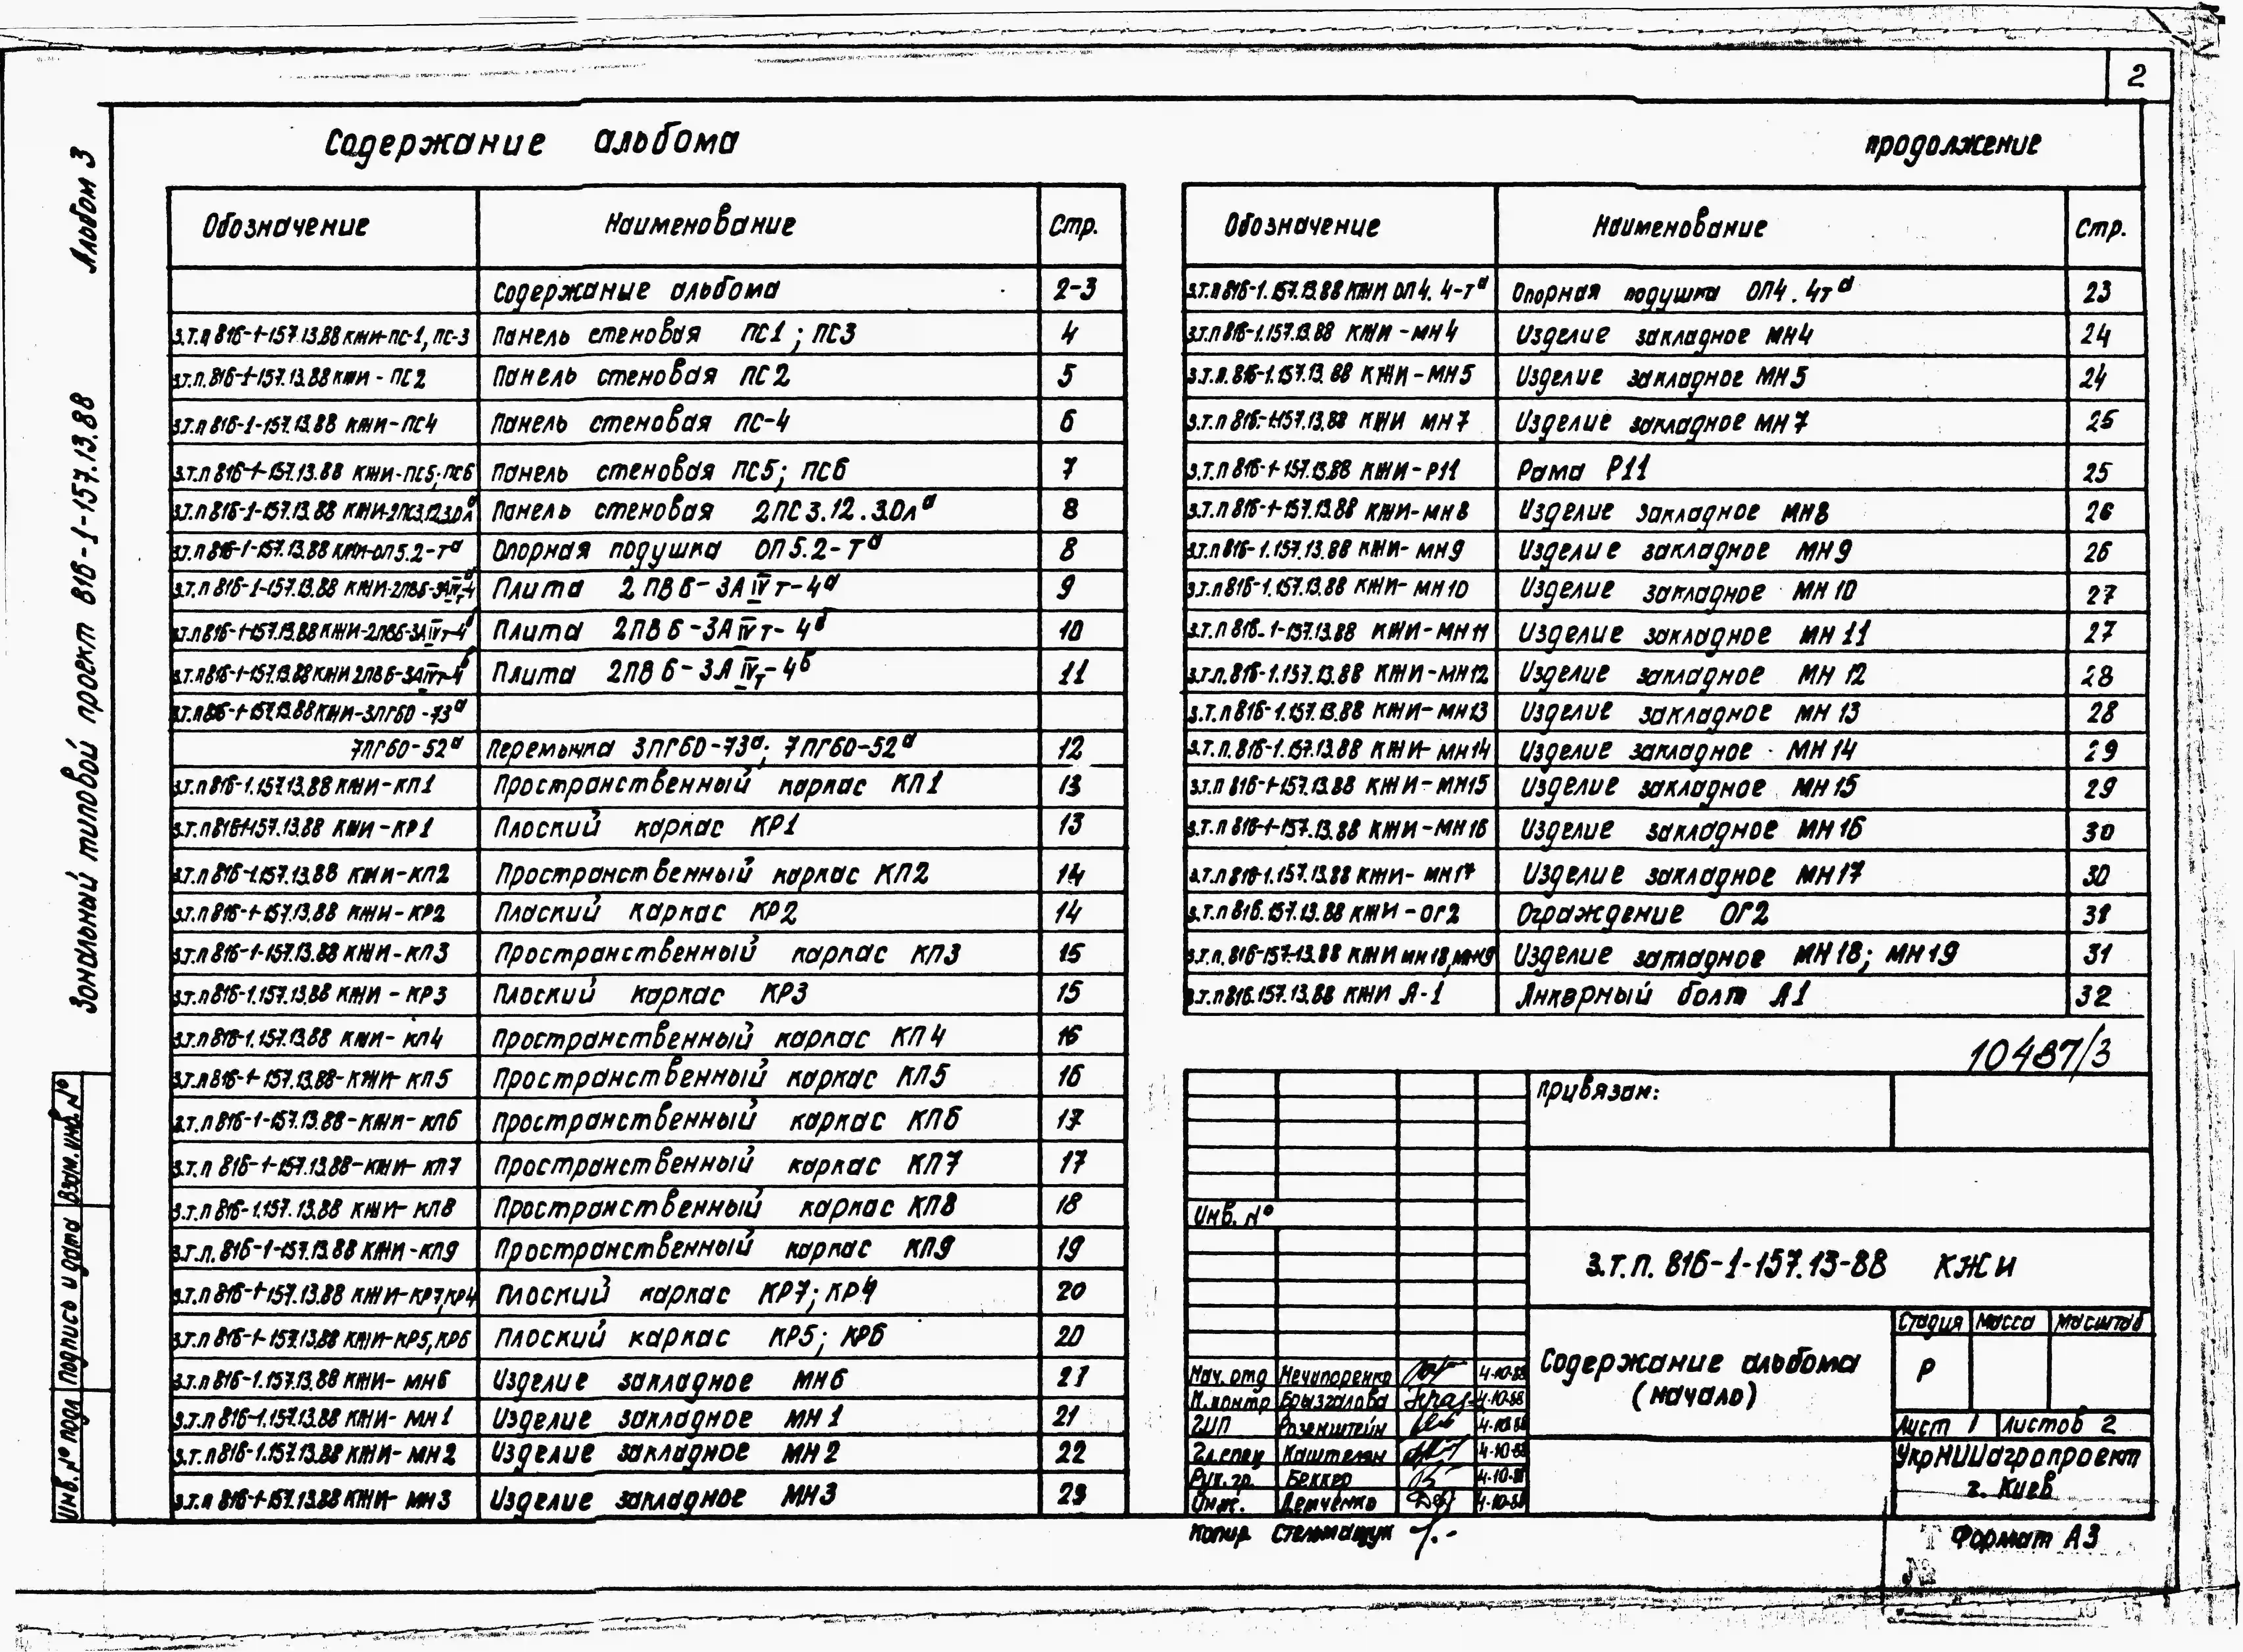 2
Содержание альбома
продолжение
Альбом 3
Зональный типовой проект 816-1-157.13.88
Обозначение Наименование Стр.
Содержание альбома 2-3
З.Т.П 816-1-157.13.88 КЖИ-ПС-1, ПС-3 Панель стеновая ПС1; ПС3 4
З.Т.П. 816-1-157.13.88 КЖИ-ПС2 Панель стеновая ПС2 5
З.Т.П 816-1-157.13.88 КЖИ-ПС4 Панель стеновая ПС-4 6
З.Т.П 816-1-157.13.88 КЖИ-ПС5; ПС6 Панель стеновая ПС5; ПС6 7
З.Т.П 816-1-157.13.88 КЖИ-2ПС3.12.3.0Лª Панель стеновая 2ПС3.12.3.0Лª 8
З.Т.П 816-1-157.13.88 КЖИ-ОП5.2-Тª Опорная подушка ОП5.2-Тª 8
З.Т.П 816-1-157.13.88 КЖИ-2ПВ6-3АIVт-4ª Плита 2ПВ6-3АIVт-4ª 9
З.Т.П 816-1-157.13.88 КЖИ-2ПВ6-3АIVт-4б Плита 2ПВ6-3АIVт-4б 10
З.Т.П 816-1-157.13.88 КЖИ 2ПВ6-3АIVт-4б Плита 2ПВ6-3АIVт-4б 11
З.Т.П 816-1-157.13.88 КЖИ-3ПГ60-73ª
7ПГ60-52ª Перемычка 3ПГ60-73ª; 7ПГ60-52ª 12
З.Т.П 816-1.157.13.88 КЖИ-КП1 Пространственный каркас КП1 13
З.Т.П 816-1-157.13.88 КЖИ-КР1 Плоский каркас КР1 13
З.Т.П 816-1.157.13.88 КЖИ-КП2 Пространственный каркас КП2 14
З.Т.П 816-1-157.13.88 КЖИ-КР2 Плоский каркас КР2 14
З.Т.П 816-1-157.13.88 КЖИ-КП3 Пространственный каркас КП3 15
З.Т.П 816-1.157.13.88 КЖИ-КР3 Плоский каркас КР3 15
З.Т.П 816-1.157.13.88 КЖИ-КП4 Пространственный каркас КП4 16
З.Т.П 816-1-157.13.88-КЖИ-КП5 Пространственный каркас КП5 16
З.Т.П 816-1-157.13.88-КЖИ-КП6 Пространственный каркас КП6 17
З.Т.П 816-1-157.13.88-КЖИ-КП7 Пространственный каркас КП7 17
З.Т.П 816-1.157.13.88 КЖИ-КП8 Пространственный каркас КП8 18
З.Т.П. 816-1-157.13.88 КЖИ-КП9 Пространственный каркас КП9 19
З.Т.П 816-1-157.13.88 КЖИ-КР7, КР4 Плоский каркас КР7; КР4 20
З.Т.П 816-1-157.13.88 КЖИ-КР5, КР6 Плоский каркас КР5; КР6 20
З.Т.П 816-1.157.13.88 КЖИ-МН6 Изделие закладное МН6 21
З.Т.П 816-1.157.13.88 КЖИ-МН1 Изделие закладное МН1 21
З.Т.П 816-1.157.13.88 КЖИ-МН2 Изделие закладное МН2 22
З.Т.П 816-1-157.13.88 КЖИ-МН3 Изделие закладное МН3 23
Обозначение Наименование Стр.
З.Т.П 816-1.157.13.88 КЖИ ОП4.4-Тª Опорная подушка ОП4.4тª 23
З.Т.П 816-1.157.13.88 КЖИ-МН4 Изделие закладное МН4 24
З.Т.П. 816-1.157.13.88 КЖИ-МН5 Изделие закладное МН5 24
З.Т.П 816-1-157.13.88 КЖИ МН7 Изделие закладное МН7 25
З.Т.П 816-1-157.13.88 КЖИ-Р11 Рама Р11 25
З.Т.П 816-1-157.13.88 КЖИ-МН8 Изделие закладное МН8 26
З.Т.П 816-1.157.13.88 КЖИ-МН9 Изделие закладное МН9 26
З.Т.П 816-1.157.13.88 КЖИ-МН10 Изделие закладное МН10 27
З.Т.П 816-1-157.13.88 КЖИ-МН11 Изделие закладное МН11 27
З.Т.П. 816-1.157.13.88 КЖИ-МН12 Изделие закладное МН12 28
З.Т.П 816-1.157.13.88 КЖИ-МН13 Изделие закладное МН13 28
З.Т.П. 816-1.157.13.88 КЖИ-МН14 Изделие закладное МН14 29
З.Т.П 816-1-157.13.88 КЖИ-МН15 Изделие закладное МН15 29
З.Т.П 816-1-157.13.88 КЖИ-МН16 Изделие закладное МН16 30
З.Т.П 816-1.157.13.88 КЖИ-МН17 Изделие закладное МН17 30
З.Т.П 816.157.13.88 КЖИ-ОГ2 Ограждение ОГ2 31
З.Т.П. 816-157-13.88 КЖИ МН18, МН19 Изделие закладное МН18; МН19 31
З.Т.П 816.157.13.88 КЖИ А-1 Анкерный болт А1 32
10487/3
Привязан:
Инв. №
З.Т.П. 816-1-157.13-88 КЖИ
Содержание альбома
(начало)
Стадия Масса Масштаб
Р
Лист 1 Листов 2
УкрНИИагропроект
г. Киев
Нач. отд Нечипоренко 4-10-88
Н.контр Брызгалова 4-10-88
ГИП Розенштейн 4-10-88
Гл.спец Каштелян 4-10-88
Рук. гр. Беккер 4-10-88
Инж. Демченко 4-10-88
Копир Стельмащук
Формат А3
Взам. инв. №
Подпись и дата
Инв. № подл